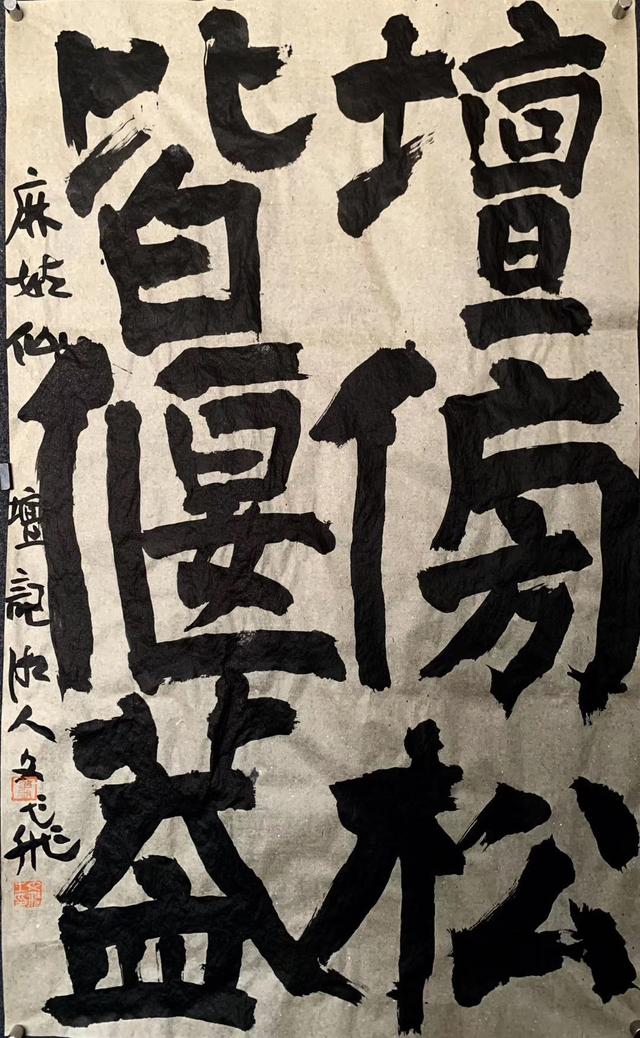 壇傍松
皆偃葢
麻姑仙壇記湘人文飛